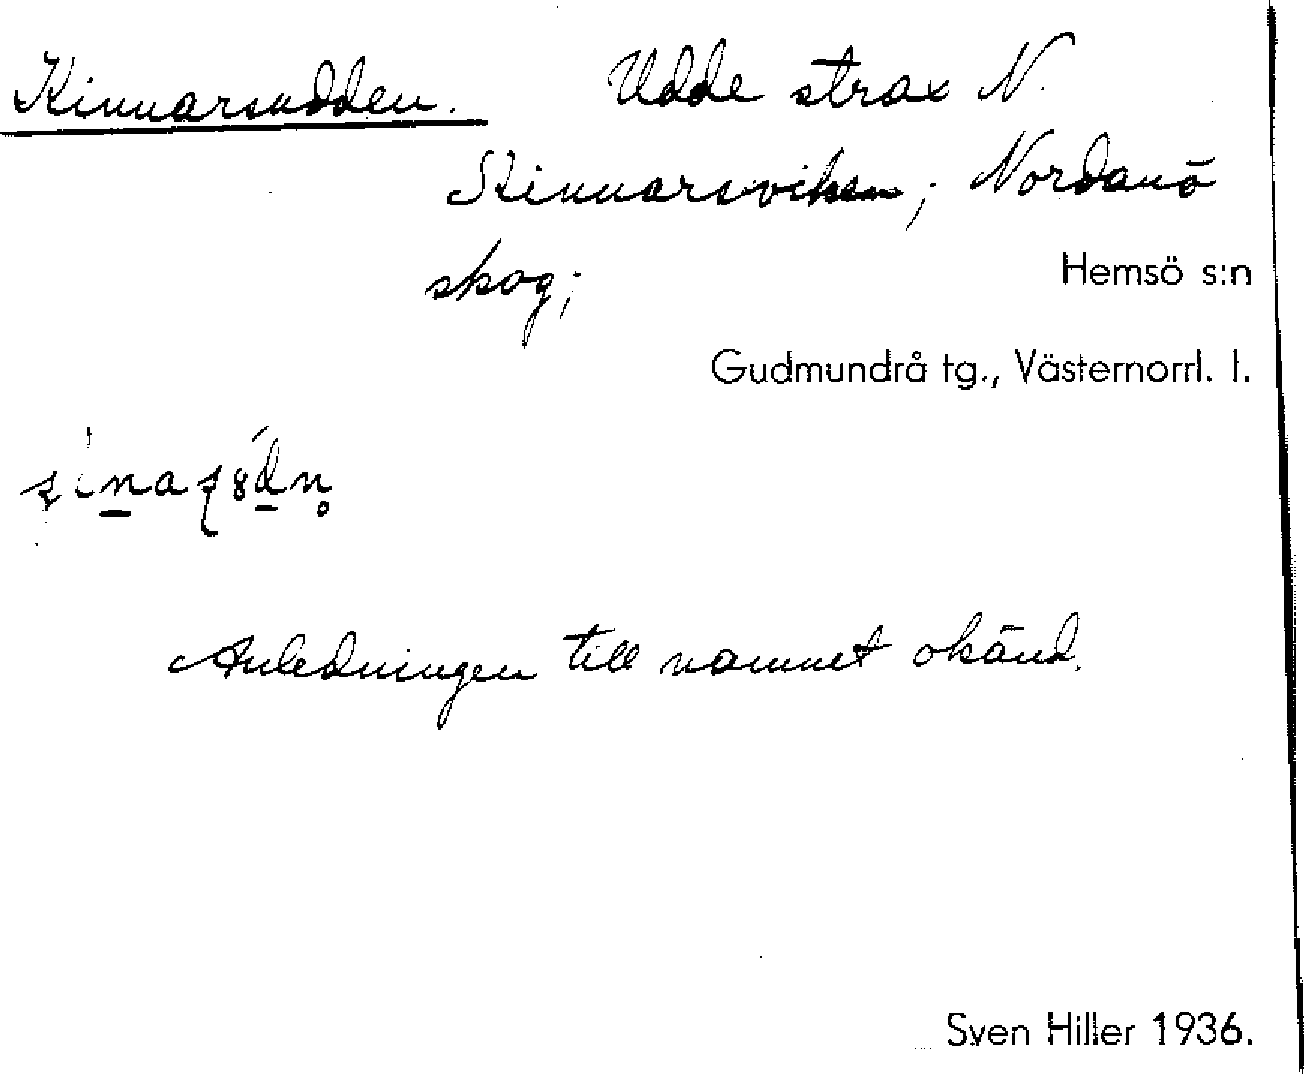 Kinnarsudden. Udde strax N.
Kinnarsviken; Nordanö
skog;
Hemsö s:n
Gudmundrå tg., Västernorrl. l.
Anledningen till namnet okänd.
Sven Hiller 1936.